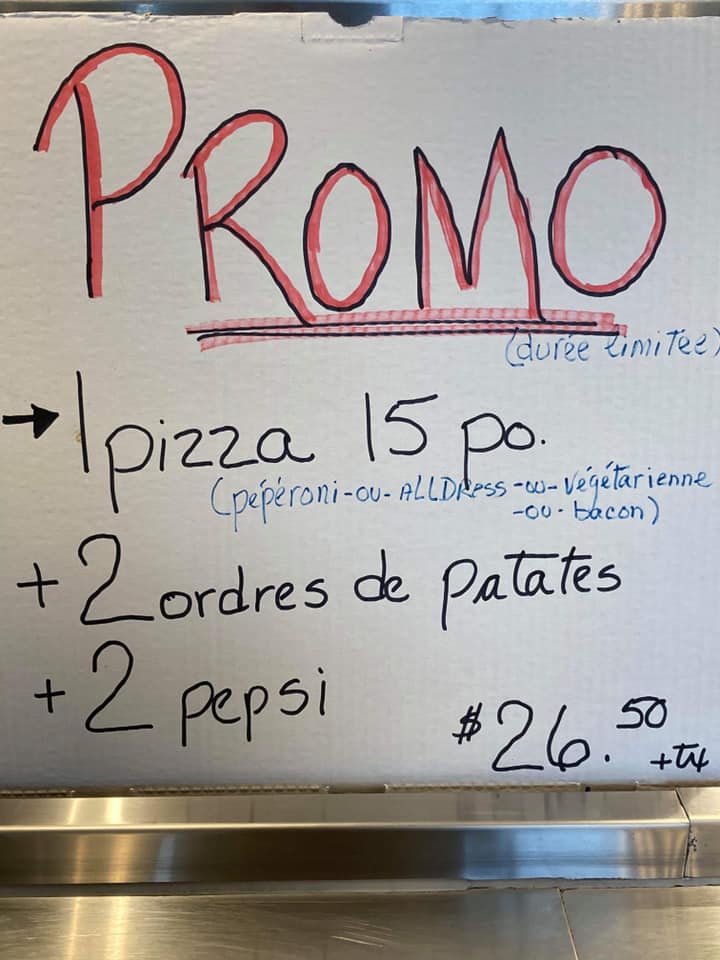 PROMO
(durée limitée)
→ 1 pizza 15 po.
(pépéroni-ou-ALLDRess-ou-végétarienne
-ou-bacon)
+ 2 ordres de patates
+ 2 pepsi
$26.50
+tx